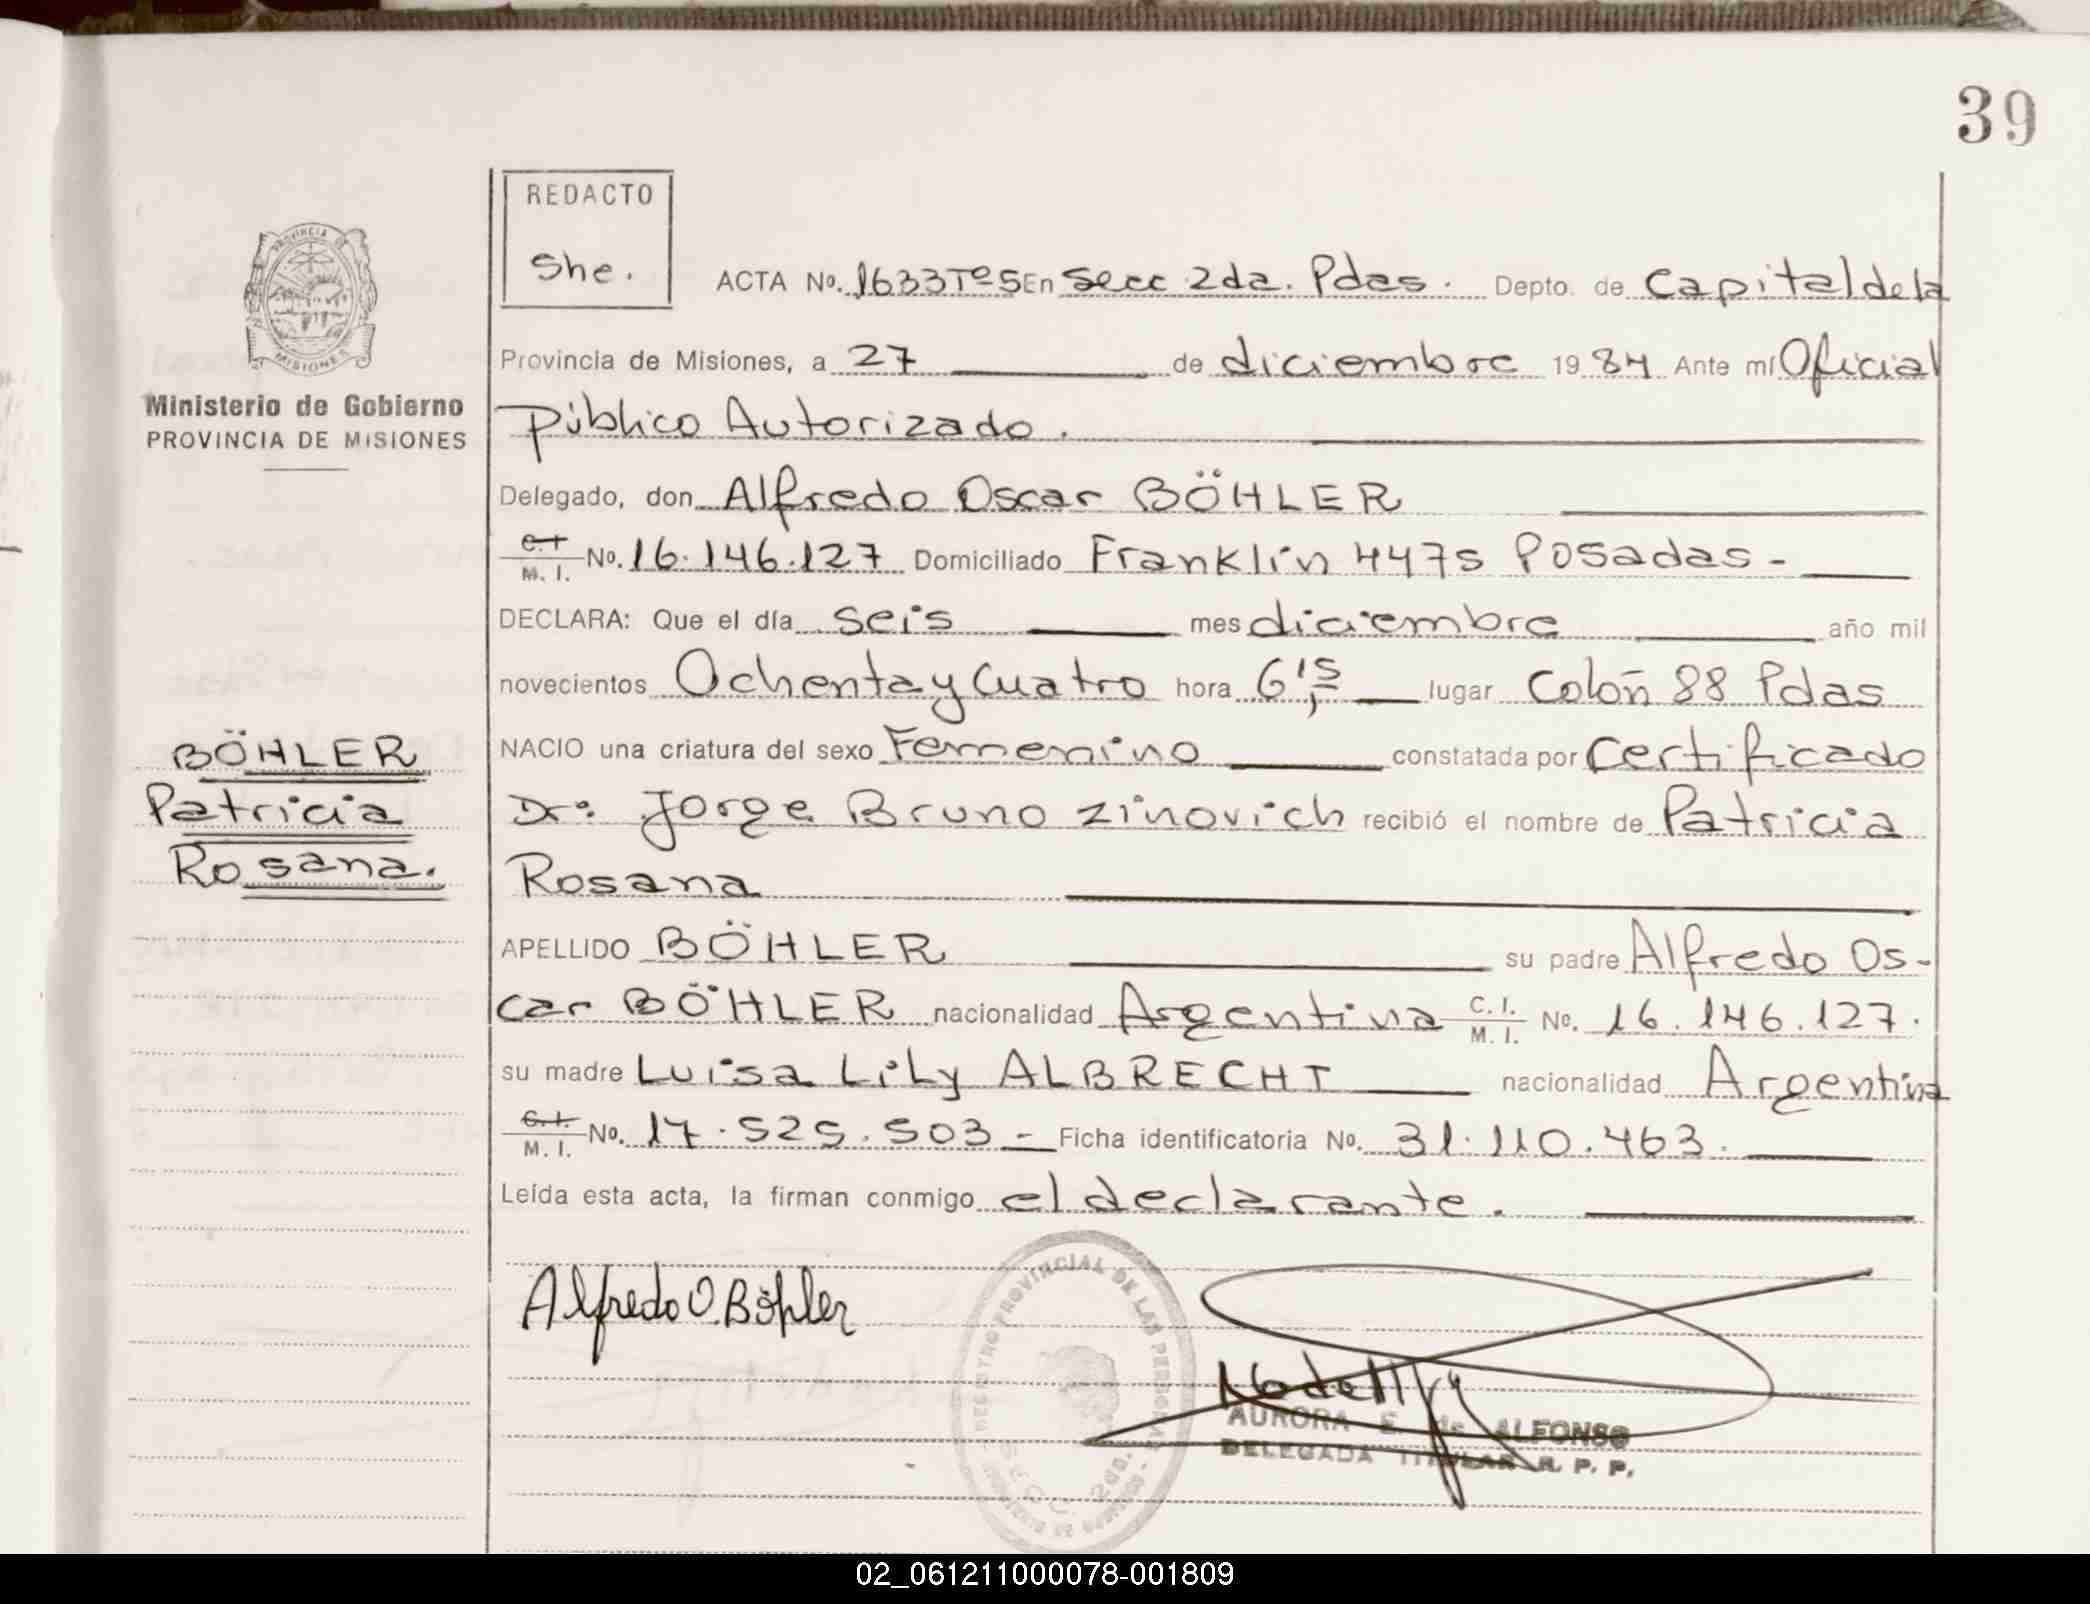 39
REDACTO
She.
ACTA No. 1633 Tº 5 En Secc 2da. Pdas. Depto. de Capital de la
PROVINCIA DE
MISIONES
Provincia de Misiones, a 27 de diciembre 19 84 Ante mí Oficial
Ministerio de Gobierno
PROVINCIA DE MISIONES
Público Autorizado.
Delegado, don Alfredo Oscar BÖHLER
C.I. M. I. No. 16.146.127 Domiciliado Franklin 4475 Posadas -
DECLARA: Que el día seis mes diciembre año mil
novecientos Ochenta y Cuatro hora 6,15 lugar Colón 88 Pdas
BÖHLER
Patricia
Rosana.
NACIO una criatura del sexo Femenino constatada por Certificado
Dr: Jorge Bruno Zinovich recibió el nombre de Patricia
Rosana
APELLIDO BÖHLER su padre Alfredo Os-
car BÖHLER nacionalidad Argentina C. I. M. I. No. 16.146.127.
su madre Luisa Lily ALBRECHT nacionalidad Argentina
C.I. M. I. No. 17.525.503 - Ficha identificatoria No. 31.110.463.
Leída esta acta, la firman conmigo el declarante.
Alfredo O. Böhler
REGISTRO PROVINCIAL DE LAS PERSONAS
SECC. 2da.
AURORA E. de ALFONSO
DELEGADA TITULAR R. P. P.
02_061211000078-001809